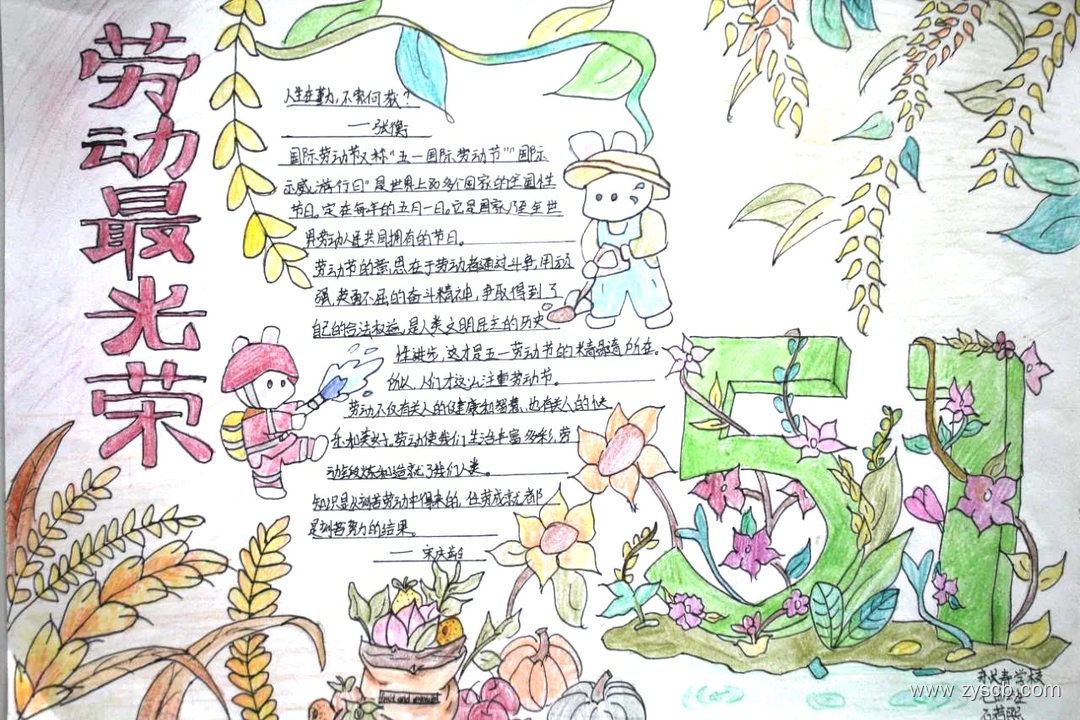 劳动最光荣
人生在勤,不索何获?
——张衡
国际劳动节又称“五一国际劳动节”“国际
示威游行日”是世界上80多个国家的全国性
节日。定在每年的五月一日。它是国家乃至全世
界劳动人民共同拥有的节日。
劳动节的意思在于劳动者通过斗争,用顽
强,英勇不屈的奋斗精神,争取得到了
自己的合法权益,是人类文明民主的历史
性进步,这才是五一劳动节的精髓所在。
所以,人们才这么注重劳动节。
劳动不仅有关人的健康和智慧,也有关人的快
乐和美好,劳动使我们生活丰富多彩,劳
动锻炼和造就了我们人类。
知识是从刻苦劳动中得来的,任何成就都
是刻苦努力的结果。
——宋庆龄
51
www.zyscb.com